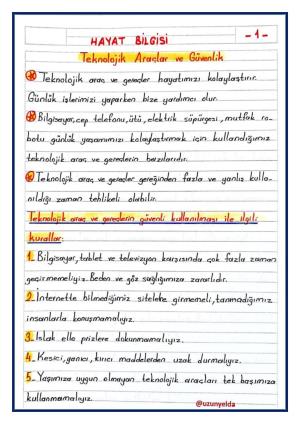 HAYAT BİLGİSİ
-1-
Teknolojik Araçlar ve Güvenlik
Teknolojik araç ve gereçler hayatımızı kolaylaştırır.
Günlük işlerimizi yaparken bize yardımcı olur.
Bilgisayar, cep telefonu, ütü, elektrik süpürgesi, mutfak ro-
botu günlük yaşamımızı kolaylaştırmak için kullandığımız
teknolojik araç ve gereçlerin bazılarıdır.
Teknolojik araç ve gereçler gereğinden fazla ve yanlış kulla-
nıldığı zaman tehlikeli olabilir.
Teknolojik araç ve gereçlerin güvenli kullanılması ile ilgili
kurallar:
1- Bilgisayar, tablet ve televizyon karşısında çok fazla zaman
geçirmemeliyiz. Beden ve göz sağlığımıza zararlıdır.
2- İnternette bilmediğimiz sitelere girmemeli, tanımadığımız
insanlarla konuşmamalıyız.
3- Islak elle prizlere dokunmamalıyız.
4- Kesici, yanıcı, kırıcı maddelerden uzak durmalıyız.
5- Yaşımıza uygun olmayan teknolojik araçları tek başımıza
kullanmamalıyız.
@uzunyelda